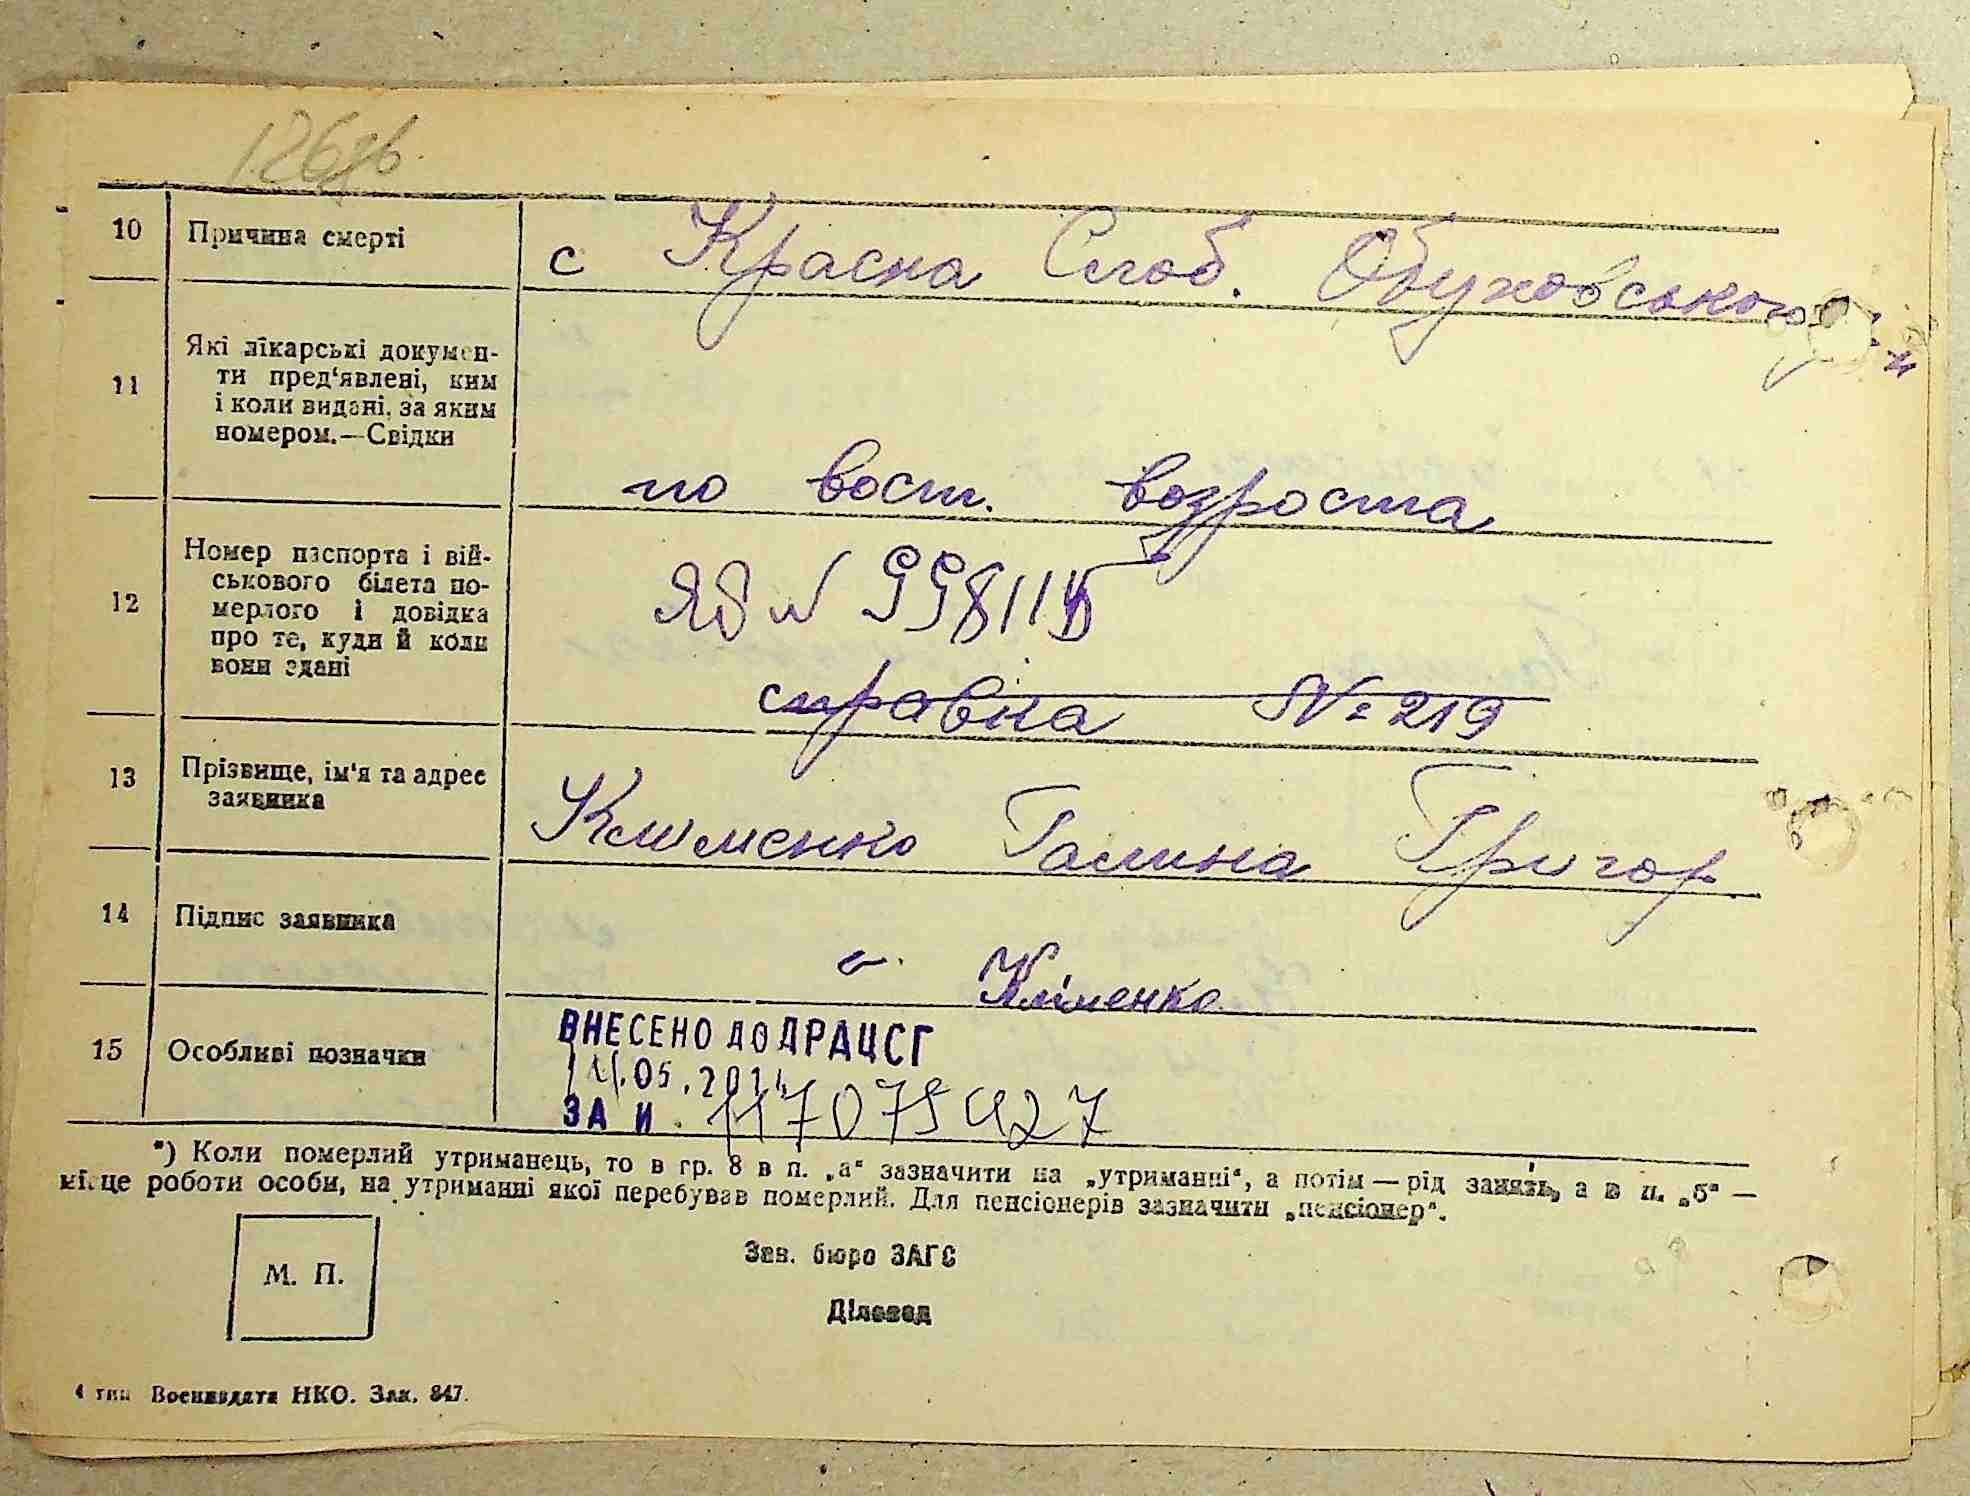 126зв
10 Причина смерті
с Красна Слоб. Обуховського р-н
11 Які лікарські докумен-
ти пред'явлені, ким
і коли видані, за яким
номером.—Свідки
по восст. возроста
12 Номер паспорта і вій-
ськового білета по-
мерлого і довідка
про те, куди й коли
вони здані
справка № 219
13 Прізвище, ім'я та адрес
заявника
Клименко Галина Григор
14 Підпис заявника
Кліменко
15 Особливі позначки
ВНЕСЕНО ДО ДРАЦСГ
ЗА И. 117075427
*) Коли померлий утриманець, то в гр. 8 в п. „а“ зазначити на „утриманні“, а потім — рід занять, а в п. „б“ —
місце роботи особи, на утриманні якої перебував померлий. Для пенсіонерів зазначити „пенсіонер“.
М. П.
Зав. бюро ЗАГС
Діловод
4 тип Воениздата НКО. Зак. 847.